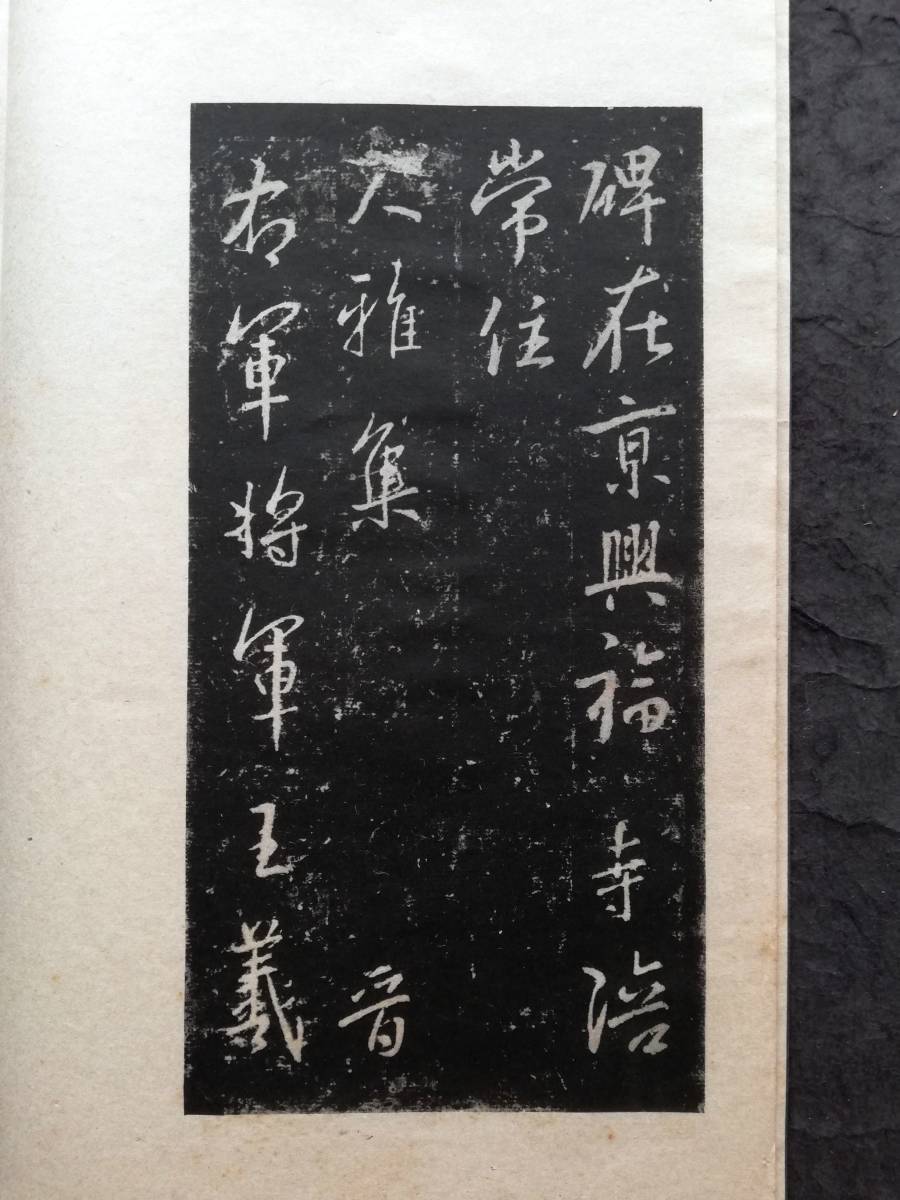 碑在京興福寺陪
常住
大雅集 晉
右軍將軍王羲